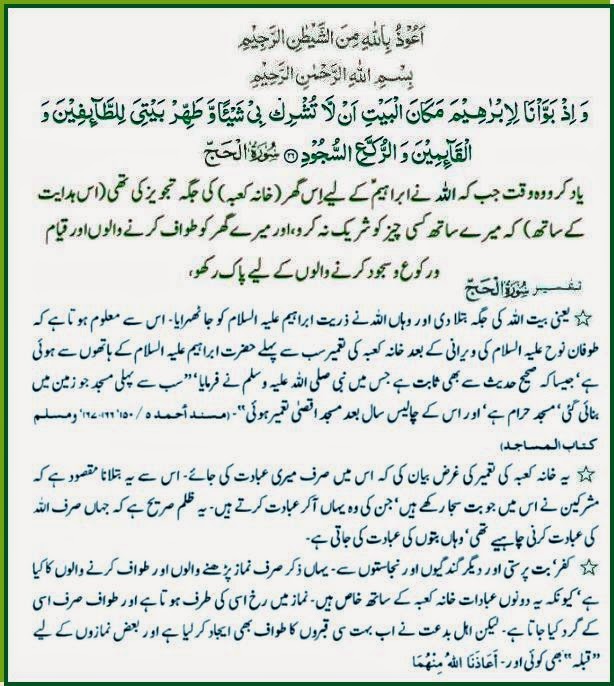 اَعُوْذُ بِاللّٰهِ مِنَ الشَّيْطٰنِ الرَّجِيْمِ
بِسْمِ اللّٰهِ الرَّحْمٰنِ الرَّحِيْمِ
وَ اِذْ بَوَّاْنَا لِاِبْرٰهِيْمَ مَكَانَ الْبَيْتِ اَنْ لَّا تُشْرِكْ بِيْ شَيْئًا وَّ طَهِّرْ بَيْتِيَ لِلطَّآىِٕفِيْنَ وَ
الْقَآىِٕمِيْنَ وَ الرُّكَّعِ السُّجُوْدِ ۲۶ سُوْرَةُ الْحَجّ
یاد کرو وہ وقت جب کہ اللہ نے ابراہیمؑ کے لیے اِس گھر (خانہ کعبہ) کی جگہ تجویز کی تھی (اس ہدایت
کے ساتھ) کہ میرے ساتھ کسی چیز کو شریک نہ کرو، اور میرے گھر کو طواف کرنے والوں اور قیام
و رکوع و سجود کرنے والوں کے لیے پاک رکھو،
تفسیر سُوْرَةُ الْحَجّ
☆ یعنی بیت اللہ کی جگہ بتلا دی اور وہاں اللہ نے ذریت ابراہیم علیہ السلام کو جا ٹھہرایا۔ اس سے معلوم ہوتا ہے کہ
طوفان نوح علیہ السلام کی ویرانی کے بعد خانہ کعبہ کی تعمیر سب سے پہلے حضرت ابراہیم علیہ السلام کے ہاتھوں سے ہوئی
ہے‘ جیسا کہ صحیح حدیث سے بھی ثابت ہے جس میں نبی صلی اللہ علیہ وسلم نے فرمایا‘ ”سب سے پہلی مسجد جو زمین میں
بنائی گئی‘ مسجد حرام ہے‘ اور اس کے چالیس سال بعد مسجد اقصیٰ تعمیر ہوئی“۔ (مسند أحمد ۵ / ۱۵۰‘ ۱۶۶۔۱۶۷‘ ومسلم
كتاب المساجد)
☆ یہ خانہ کعبہ کی تعمیر کی غرض بیان کی کہ اس میں صرف میری عبادت کی جائے۔ اس سے یہ بتلانا مقصود ہے کہ
مشرکین نے اس میں جو بت سجا رکھے ہیں‘ جن کی وہ یہاں آکر عبادت کرتے ہیں۔ یہ ظلم صریح ہے کہ جہاں صرف اللہ
کی عبادت کرنی چاہیے تھی‘ وہاں بتوں کی عبادت کی جاتی ہے۔
☆ کفر‘ بت پرستی اور دیگر گندگیوں اور نجاستوں سے۔ یہاں ذکر صرف نماز پڑھنے والوں اور طواف کرنے والوں کا کیا
ہے‘ کیونکہ یہ دونوں عبادات خانہ کعبہ کے ساتھ خاص ہیں۔ نماز میں رخ اسی کی طرف ہوتا ہے اور طواف صرف اسی
کے گرد کیا جاتا ہے۔ لیکن اہل بدعت نے اب بہت سی قبروں کا طواف بھی ایجاد کر لیا ہے اور بعض نمازوں کے لیے
”قبلہ“ بھی کوئی اور۔ أَعَاذَنَا اللهُ مِنْهُمَا